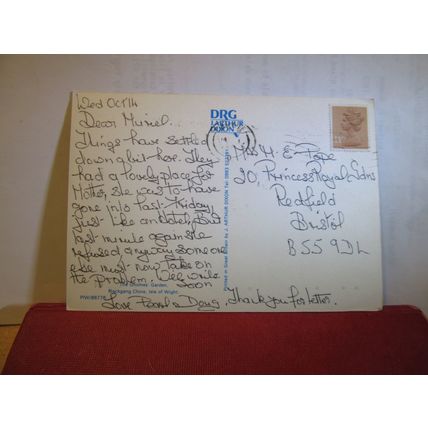 Wed Oct 14
Dear Muriel...
Things have settled
down a bit here. They
had a lovely place for
Mother, she was to have
gone into last Friday,
Just like an hotel, But
last minute again she
refused, anyway someone
else must now take on
the problem. We'll write
soon
Love & Doug.
Thank you for letter.
DRG
J. ARTHUR
DIXON
Printed in Great Britain by J. ARTHUR DIXON
Miss M. E. Pope
20, Princess Royal Gdns
Redfield
Bristol
BS5 9DL
Garden,
Blackgang Chine, Isle of Wight.